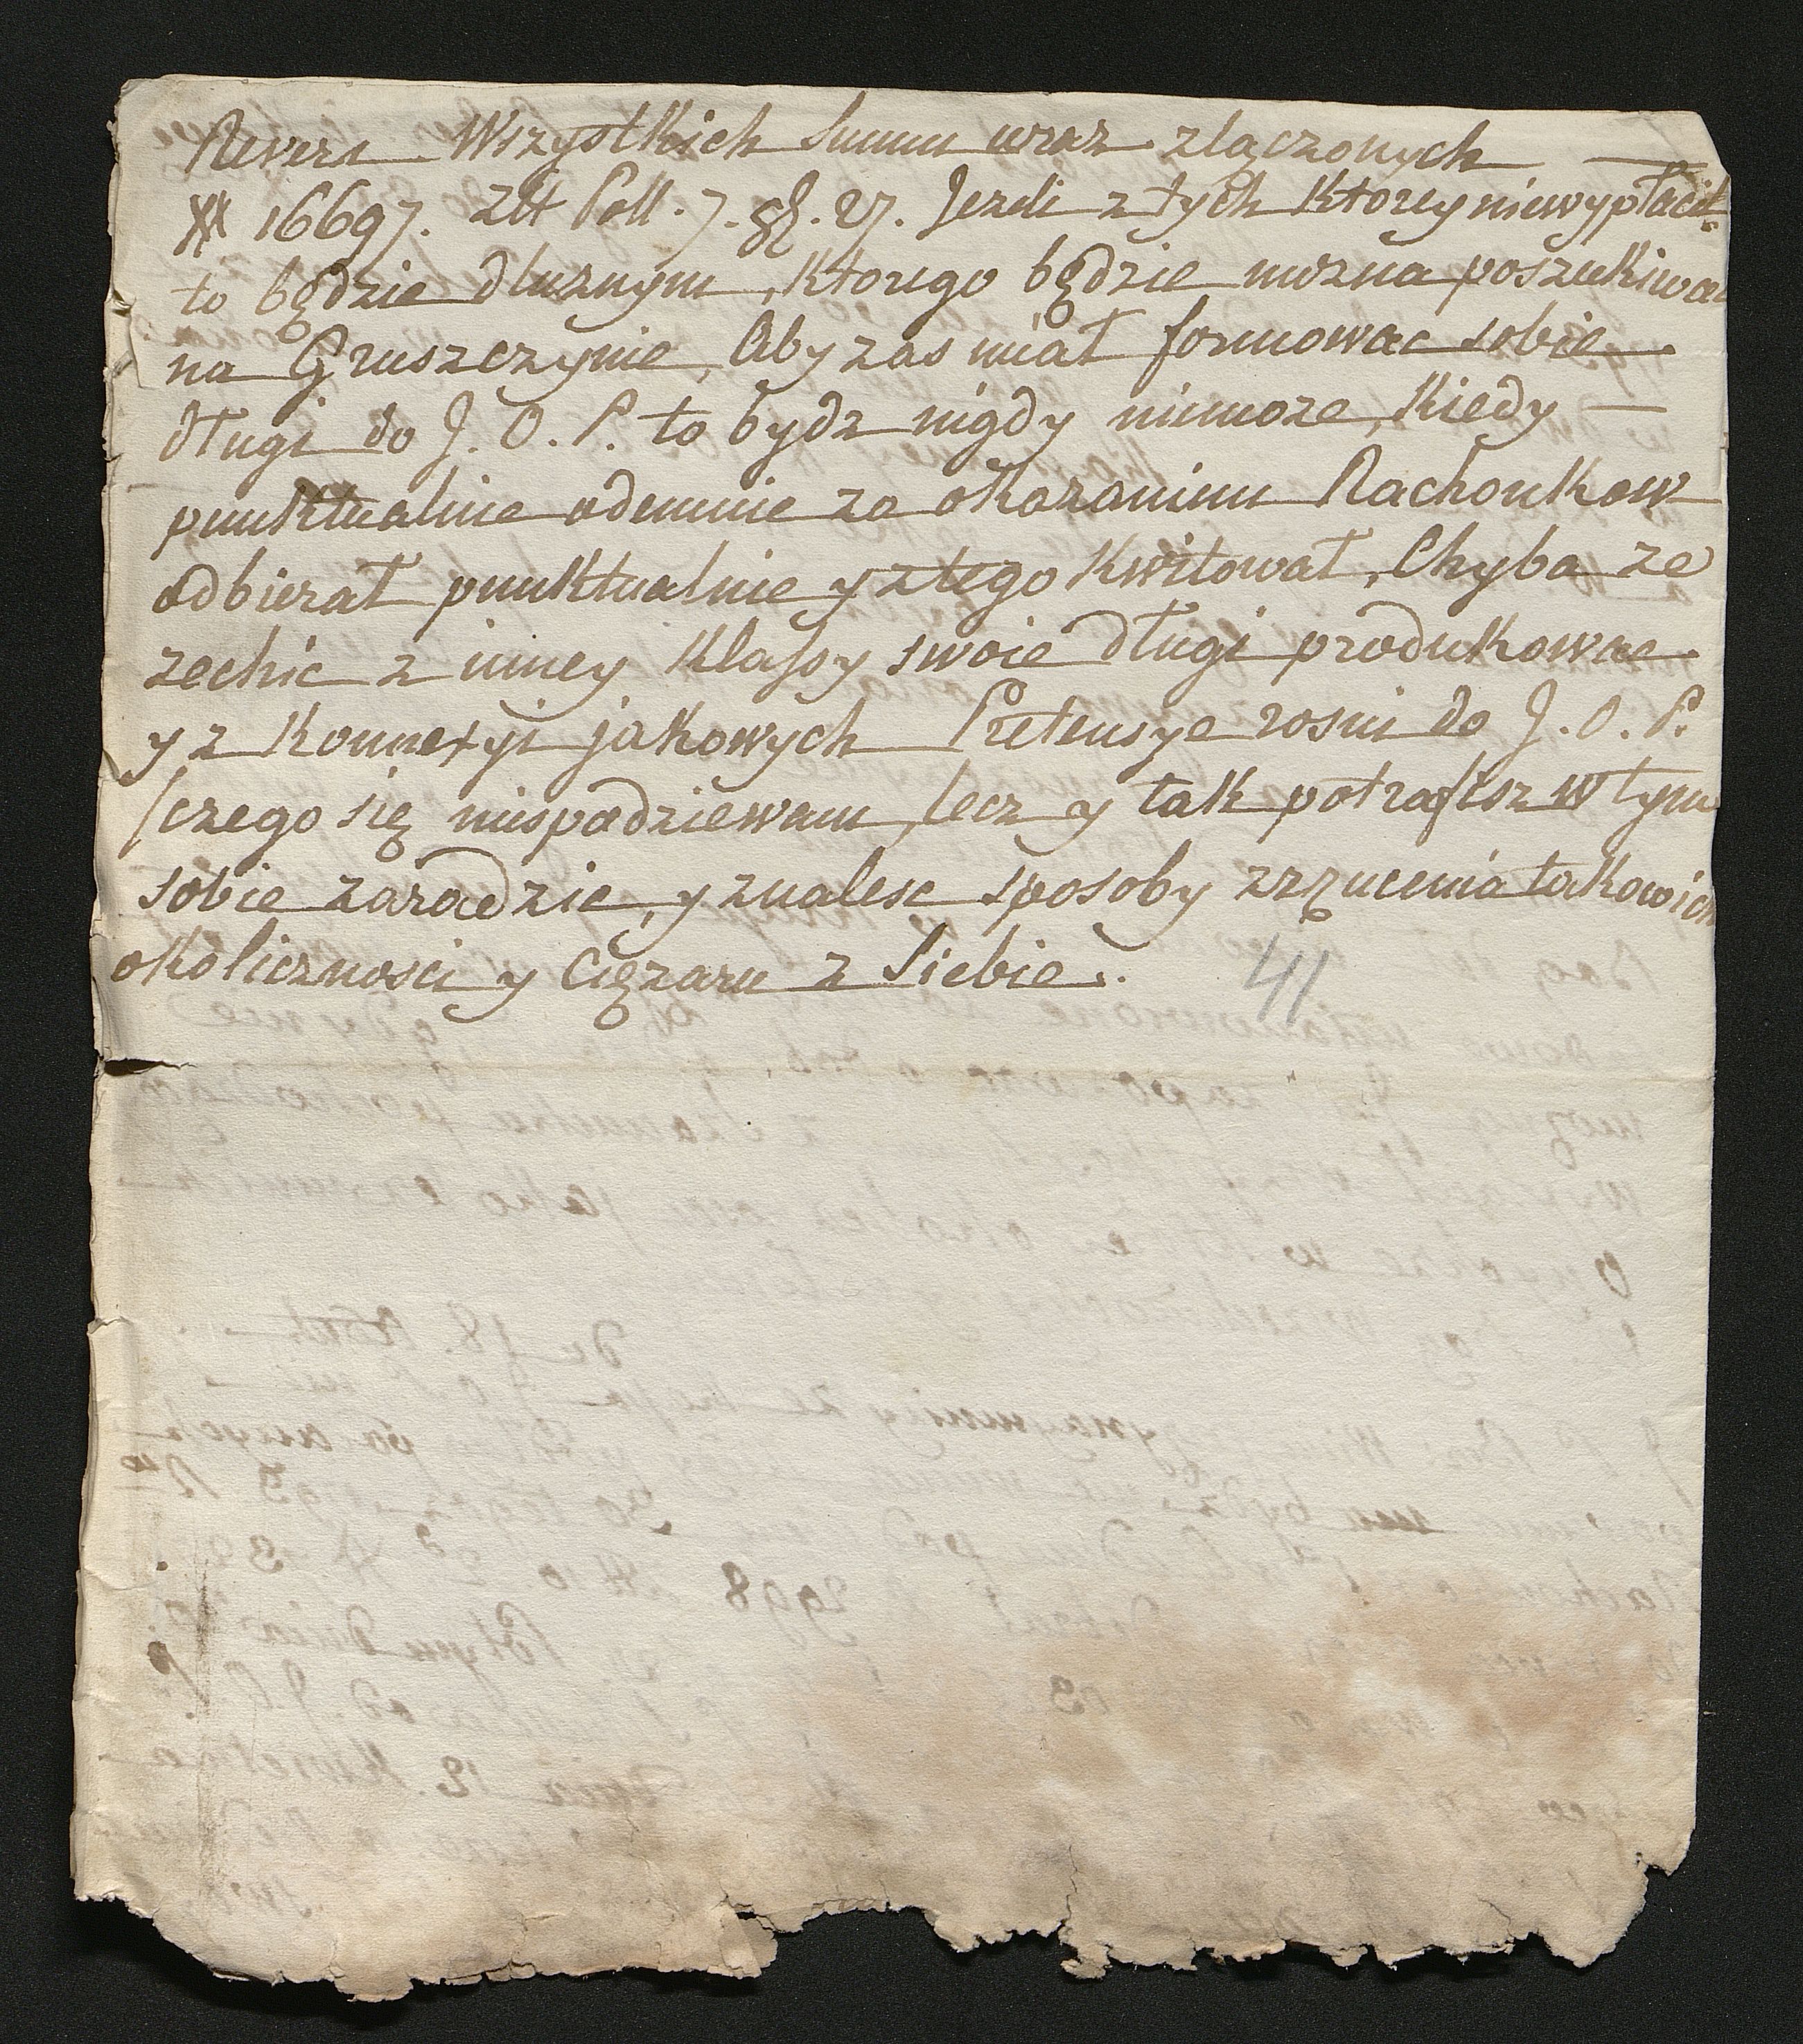 Revers Wszystkich Summ wraz złączonych —
16697. Złt Poll. 7. gl. 27. Jezeli z tych ktorey niewypłacił
to będzie dłuznym, ktorego będzie mozna poszukiwac
na Gruszczynie, Aby zas miał formowac sobie
długi do J. O. P. to bydz nigdy niemoze, Kiedy —
punktualnie odemnie za okazaniem Rachonkow
odbierał punktualnie y ztego kwitował, Chyba ze
zechic z inney Klassy swoie długi produkowac
y z Konnexyi jakowych Pretensye rosni do J. O. P.
/czego się niespodziewam, lecz y tak potrafisz w tym
sobie zaradzic, y znalesc sposoby zrzucenia takowich
okolicznosci y Cięzaru z Siebie.
41